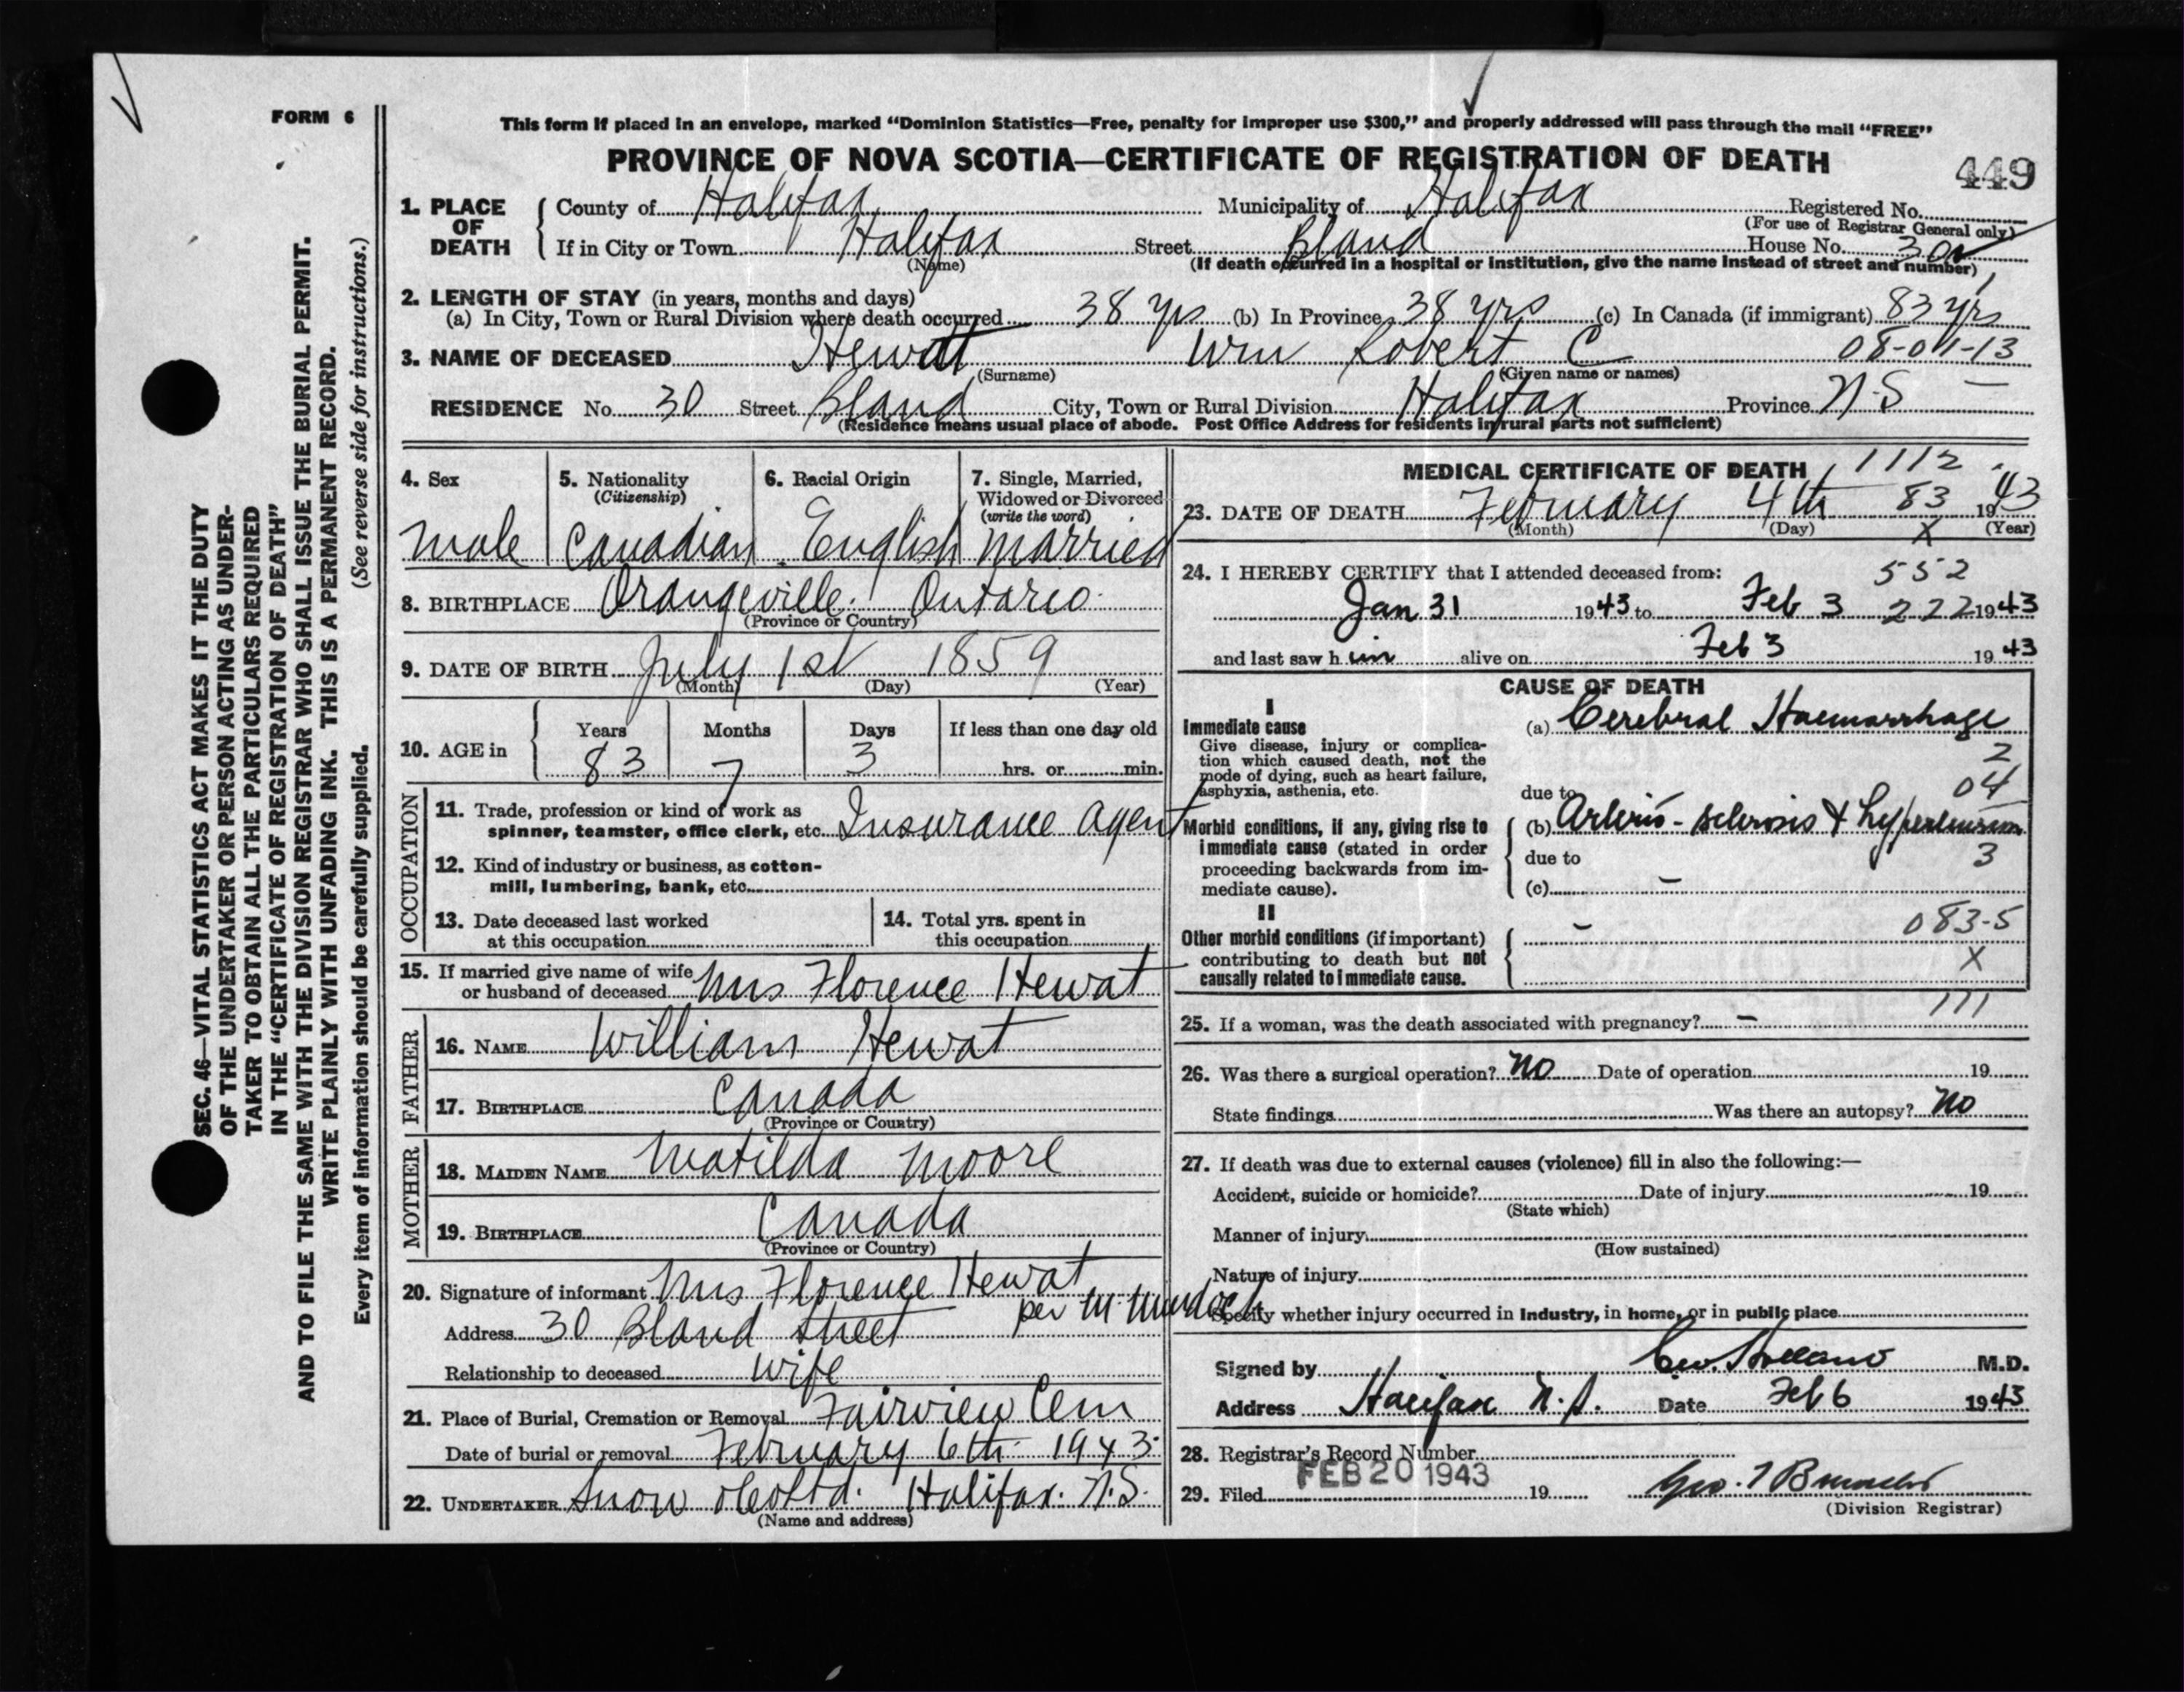 FORM 6
This form if placed in an envelope, marked “Dominion Statistics—Free, penalty for improper use $300,” and properly addressed will pass through the mail “FREE”
PROVINCE OF NOVA SCOTIA—CERTIFICATE OF REGISTRATION OF DEATH
449
1. PLACE OF DEATH County of Halifax Municipality of Halifax Registered No.
(For use of Registrar General only)
If in City or Town Halifax Street Bland House No. 30
(Name) (If death occurred in a hospital or institution, give the name instead of street and number)
2. LENGTH OF STAY (in years, months and days)
(a) In City, Town or Rural Division where death occurred 38 yrs (b) In Province 38 yrs (c) In Canada (if immigrant) 83 yrs
3. NAME OF DECEASED Hewat Wm Robert C 08-01-13
(Surname) (Given name or names)
RESIDENCE No. 30 Street Bland City, Town or Rural Division Halifax Province N.S —
(Residence means usual place of abode. Post Office Address for residents in rural parts not sufficient)
4. Sex 5. Nationality 6. Racial Origin 7. Single, Married,
(Citizenship) Widowed or Divorced
(write the word)
Male Canadian English Married
8. BIRTHPLACE Orangeville Ontario
(Province or Country)
9. DATE OF BIRTH July 1st 1859
(Month) (Day) (Year)
10. AGE in Years Months Days If less than one day old
83 7 3 hrs. or min.
OCCUPATION
11. Trade, profession or kind of work as
spinner, teamster, office clerk, etc. Insurance Agent
12. Kind of industry or business, as cotton-
mill, lumbering, bank, etc.
13. Date deceased last worked 14. Total yrs. spent in
at this occupation this occupation
15. If married give name of wife
or husband of deceased Mrs Florence Hewat
FATHER
16. NAME William Hewat
17. BIRTHPLACE Canada
(Province or Country)
MOTHER
18. MAIDEN NAME Matilda Moore
19. BIRTHPLACE Canada
(Province or Country)
20. Signature of informant Mrs Florence Hewat
per M. Murdoch
Address 30 Bland Street
Relationship to deceased Wife
21. Place of Burial, Cremation or Removal Fairview Cem
Date of burial or removal February 6th 1943
22. UNDERTAKER Snow & Co Ltd. Halifax. N.S.
(Name and address)
MEDICAL CERTIFICATE OF DEATH 1112
23. DATE OF DEATH February 4th 83 1943
(Month) (Day) X (Year)
24. I HEREBY CERTIFY that I attended deceased from: 552
Jan 31 1943 to Feb 3 222 1943
and last saw h im alive on Feb 3 1943
CAUSE OF DEATH
I
Immediate cause (a) Cerebral Haemorrhage
Give disease, injury or complica-
tion which caused death, not the 2
mode of dying, such as heart failure,
asphyxia, asthenia, etc. due to 04
Morbid conditions, if any, giving rise to (b) Arterio-sclerosis & hypertension
immediate cause (stated in order
proceeding backwards from im- due to 3
mediate cause). (c) –
II
Other morbid conditions (if important) – 083-5
contributing to death but not X
causally related to immediate cause.
111
25. If a woman, was the death associated with pregnancy? –
26. Was there a surgical operation? No Date of operation 19
State findings Was there an autopsy? No
27. If death was due to external causes (violence) fill in also the following:—
Accident, suicide or homicide? Date of injury 19
(State which)
Manner of injury
(How sustained)
Nature of injury
Specify whether injury occurred in industry, in home, or in public place
Signed by M.D.
Address Halifax N.S. Date Feb 6 1943
28. Registrar's Record Number
FEB 20 1943
29. Filed 19
(Division Registrar)
SEC. 46—VITAL STATISTICS ACT MAKES IT THE DUTY
OF THE UNDERTAKER OR PERSON ACTING AS UNDER-
TAKER TO OBTAIN ALL THE PARTICULARS REQUIRED
IN THE “CERTIFICATE OF REGISTRATION OF DEATH”
AND TO FILE THE SAME WITH THE DIVISION REGISTRAR WHO SHALL ISSUE THE BURIAL PERMIT.
WRITE PLAINLY WITH UNFADING INK. THIS IS A PERMANENT RECORD.
Every item of information should be carefully supplied. (See reverse side for instructions.)